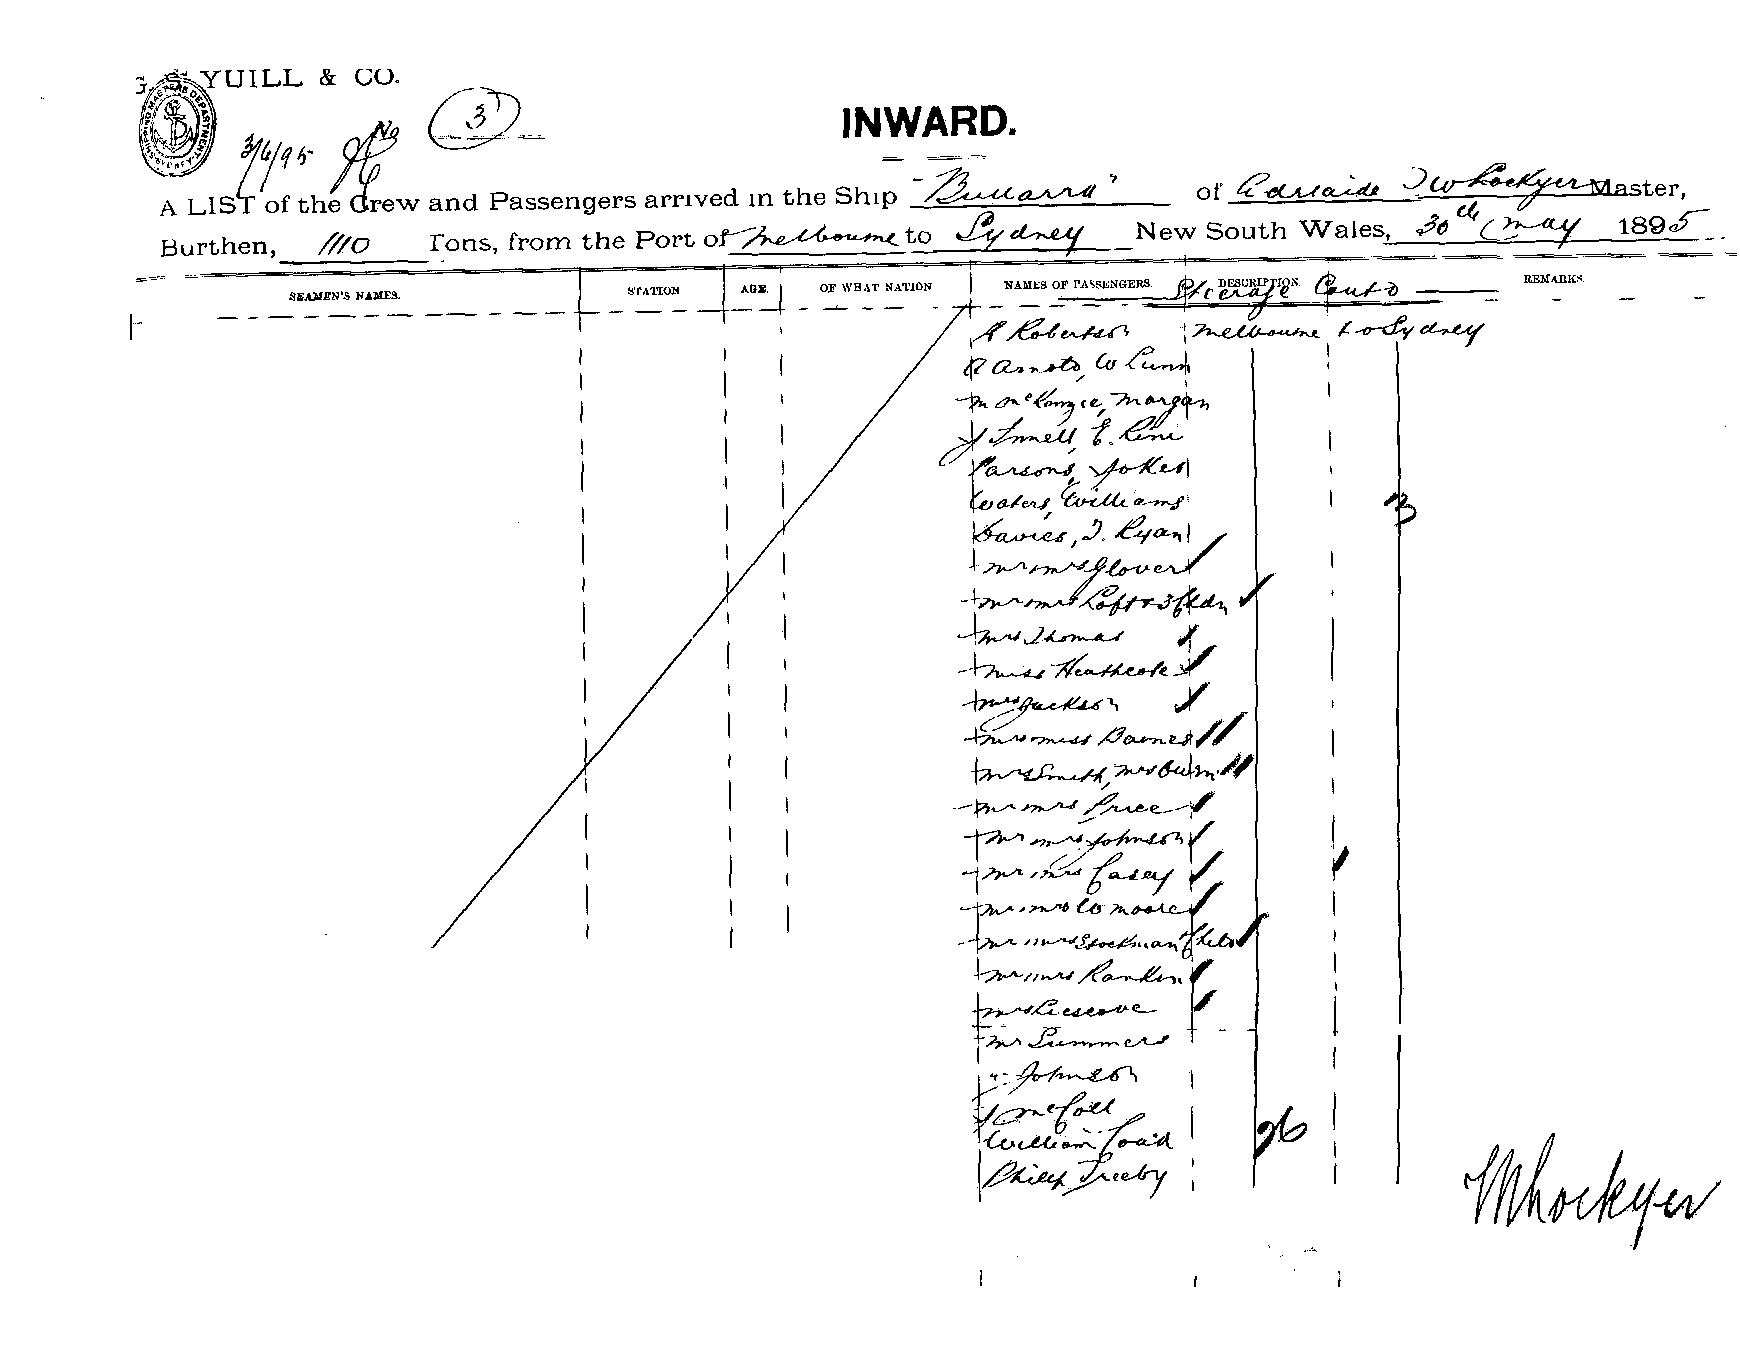 YUILL & CO.
3
INWARD.
3/6/95
A LIST of the Crew and Passengers arrived in the Ship "Bullarra" of Adelaide J W Lockyer Master,
Burthen, 1110 Tons, from the Port of Melbourne to Sydney New South Wales, 30th May 1895
SEAMEN'S NAMES. STATION AGE. OF WHAT NATION NAMES OF PASSENGERS. DESCRIPTION. REMARKS.
Steerage Cont'd
Robertson Melbourne to Sydney
R Arnott, W Lunn
M McKenzie, Morgan
E.
Parsons, Jokes
Waters, Williams
Davies, J. Ryan
Mr Mrs Glover
Mr Mrs Loft & 3 Chdn
Mrs Thomas
Miss Heathcote
Mrs Jackson
3
Mrs Miss Barnes
Mrs Smith, Mrs
Mr Mrs Price
Mr Mrs Johnson
Mr Mrs Casey
Mr Mrs W Moore
Mr Mrs Stockman Child
Mr Mrs Rankin
Mrs
Mr Summers
" Johnson
J McColl
William
26
Philip Treeby
Lockyer